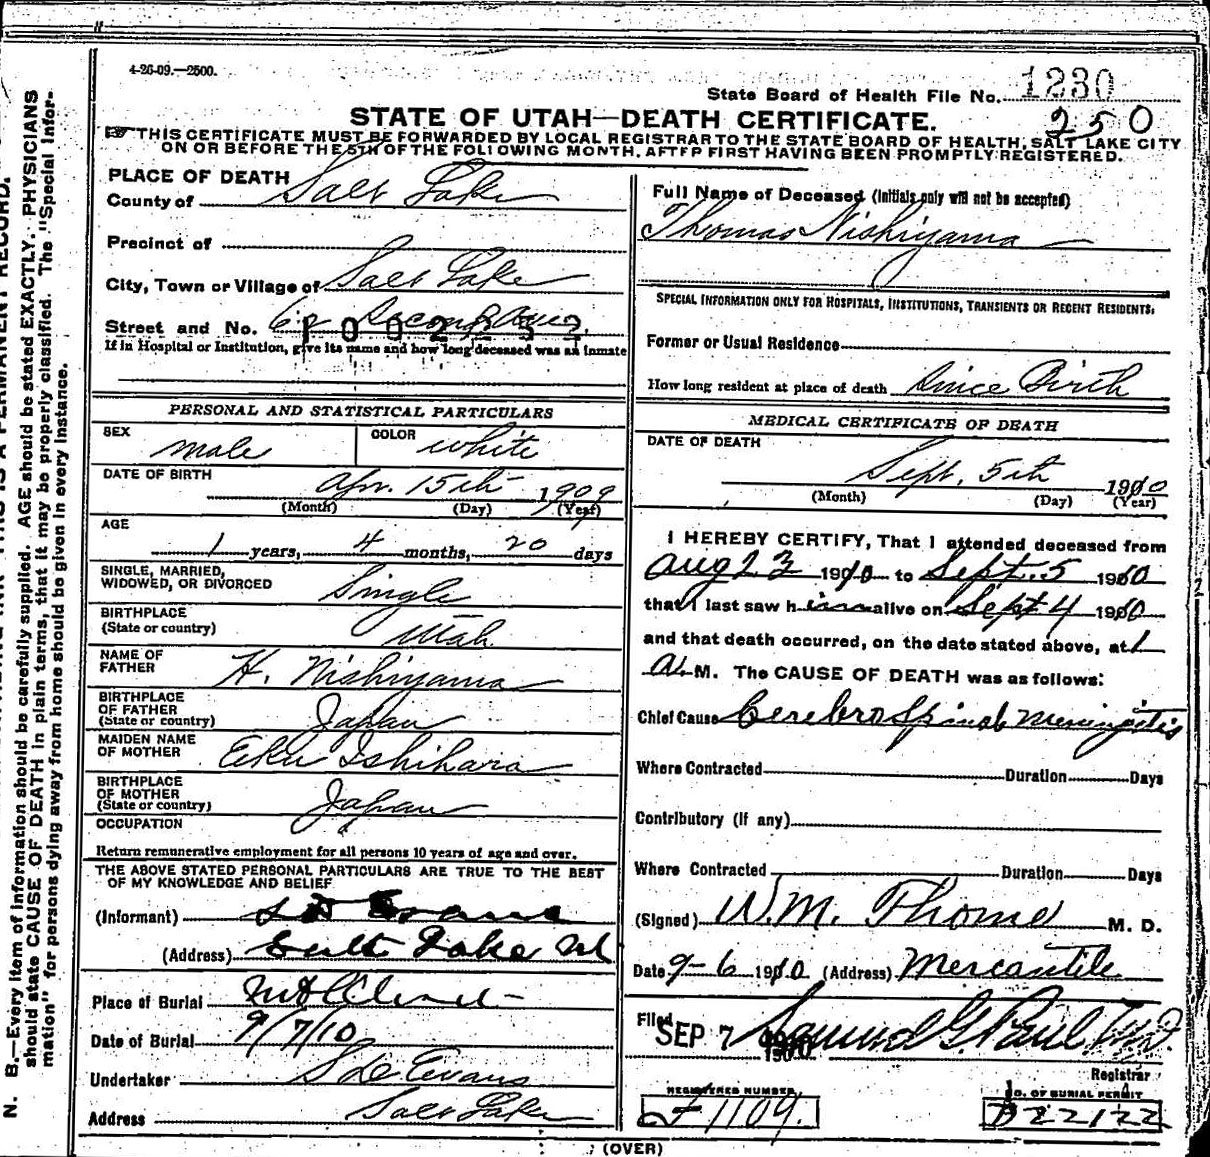 4-26-09.—2500.
State Board of Health File No. 1230
STATE OF UTAH—DEATH CERTIFICATE.
250
THIS CERTIFICATE MUST BE FORWARDED BY LOCAL REGISTRAR TO THE STATE BOARD OF HEALTH, SALT LAKE CITY
ON OR BEFORE THE 5TH OF THE FOLLOWING MONTH, AFTER FIRST HAVING BEEN PROMPTLY REGISTERED.
PLACE OF DEATH
County of Salt Lake
Precinct of
City, Town or Village of Salt Lake
Street and No. 62 Second Ave.
If in Hospital or Institution, give its name and how long deceased was an inmate
PERSONAL AND STATISTICAL PARTICULARS
SEX male COLOR white
DATE OF BIRTH Apr. 15th 1909
(Month) (Day) (Year)
AGE
1 years, 4 months, 20 days
SINGLE, MARRIED,
WIDOWED, OR DIVORCED Single
BIRTHPLACE
(State or country) Utah
NAME OF
FATHER H. Nishiyama
BIRTHPLACE
OF FATHER
(State or country) Japan
MAIDEN NAME
OF MOTHER Eku Ishihara
BIRTHPLACE
OF MOTHER
(State or country) Japan
OCCUPATION
Return remunerative employment for all persons 10 years of age and over.
THE ABOVE STATED PERSONAL PARTICULARS ARE TRUE TO THE BEST
OF MY KNOWLEDGE AND BELIEF
(Informant) S D Evans
(Address) Salt Lake
Place of Burial Mt Olivet
Date of Burial 9/7/10
Undertaker S D Evans
Address Salt Lake
Full Name of Deceased (Initials only will not be accepted)
Thomas Nishiyama
SPECIAL INFORMATION ONLY FOR HOSPITALS, INSTITUTIONS, TRANSIENTS OR RECENT RESIDENTS.
Former or Usual Residence
How long resident at place of death Since Birth
MEDICAL CERTIFICATE OF DEATH
DATE OF DEATH
Sept. 5th 1910
(Month) (Day) (Year)
I HEREBY CERTIFY, That I attended deceased from
Aug 23 1910 to Sept. 5 1910
that I last saw him alive on Sept 4 1910
and that death occurred, on the date stated above, at 1
a. M. The CAUSE OF DEATH was as follows:
Chief Cause Cerebro Spinal Meningitis
Where Contracted Duration Days
Contributory (if any)
Where Contracted Duration Days
(Signed) W. M. Thorne M. D.
Date 9-6 1910 (Address) Mercantile
Filed SEP 7 Samuel G. Paul M.D.
Registrar
REGISTERED NUMBER
F1109.
NO. OF BURIAL PERMIT
B22122
(OVER)
N. B.—Every item of information should be carefully supplied. AGE should be stated EXACTLY. PHYSICIANS
should state CAUSE OF DEATH in plain terms, that it may be properly classified. The "Special Infor-
mation" for persons dying away from home should be given in every instance.